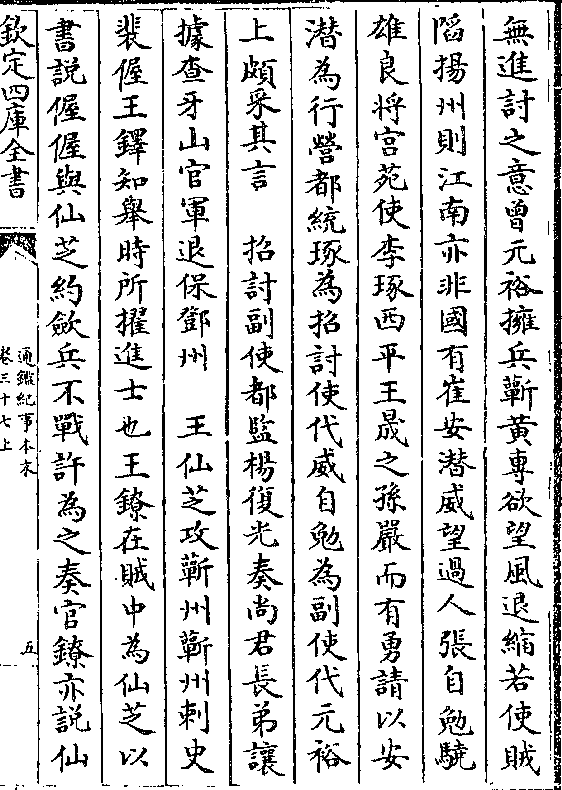 無進討之意曾元裕擁兵蘄黄專欲望風退縮若使賊
陷揚州則江南亦非國有崔安潜威望過人張自勉驍
雄良將宫苑使李琢西平王晟之孫嚴而有勇請以安
潜為行營都統琢為招討使代威自勉為副使代元裕
上頗采其言　招討副使都監楊復光奏尚君長弟讓
據查牙山官軍退保鄧州　王仙芝攻蘄州蘄州刺史
裴偓王鐸知舉時所擢進士也王鐐在賊中為仙芝以
書説偓偓與仙芝約斂兵不戰許為之奏官鐐亦説仙
欽定四庫全書
通鑑紀事本末
卷三十七上
五